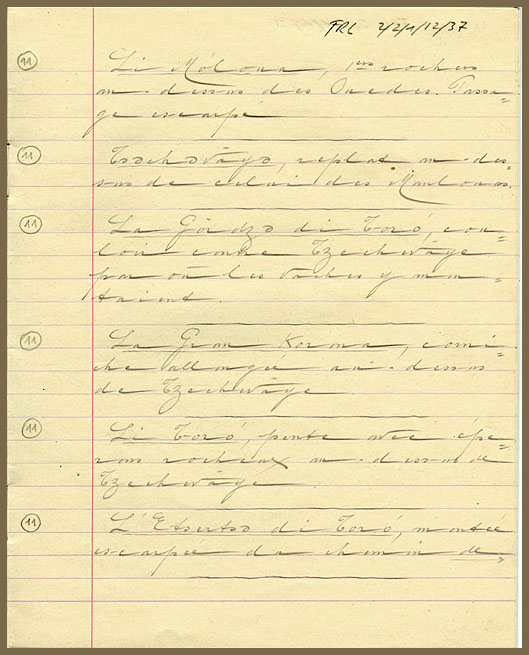 FRC 2/2/1/12/37
11 Li Mólona, 1ers rochers
au-dessus des Ouedes. Passa-
ge escarpé
11 replat au-des-
sus de celui des
11 La Gördzə di Toró, cou-
loir entre Tzechwâge
par où les vaches y mon-
taient.
11 La Gran Korona, corni-
che allongée au-dessus
de Tzechwâge
11 Li Toró, pente avec épe-
rons rocheux au-dessus de
Tzechwâge.
11 L'Etsertsə di Toró, montée
escarpée du chemin de